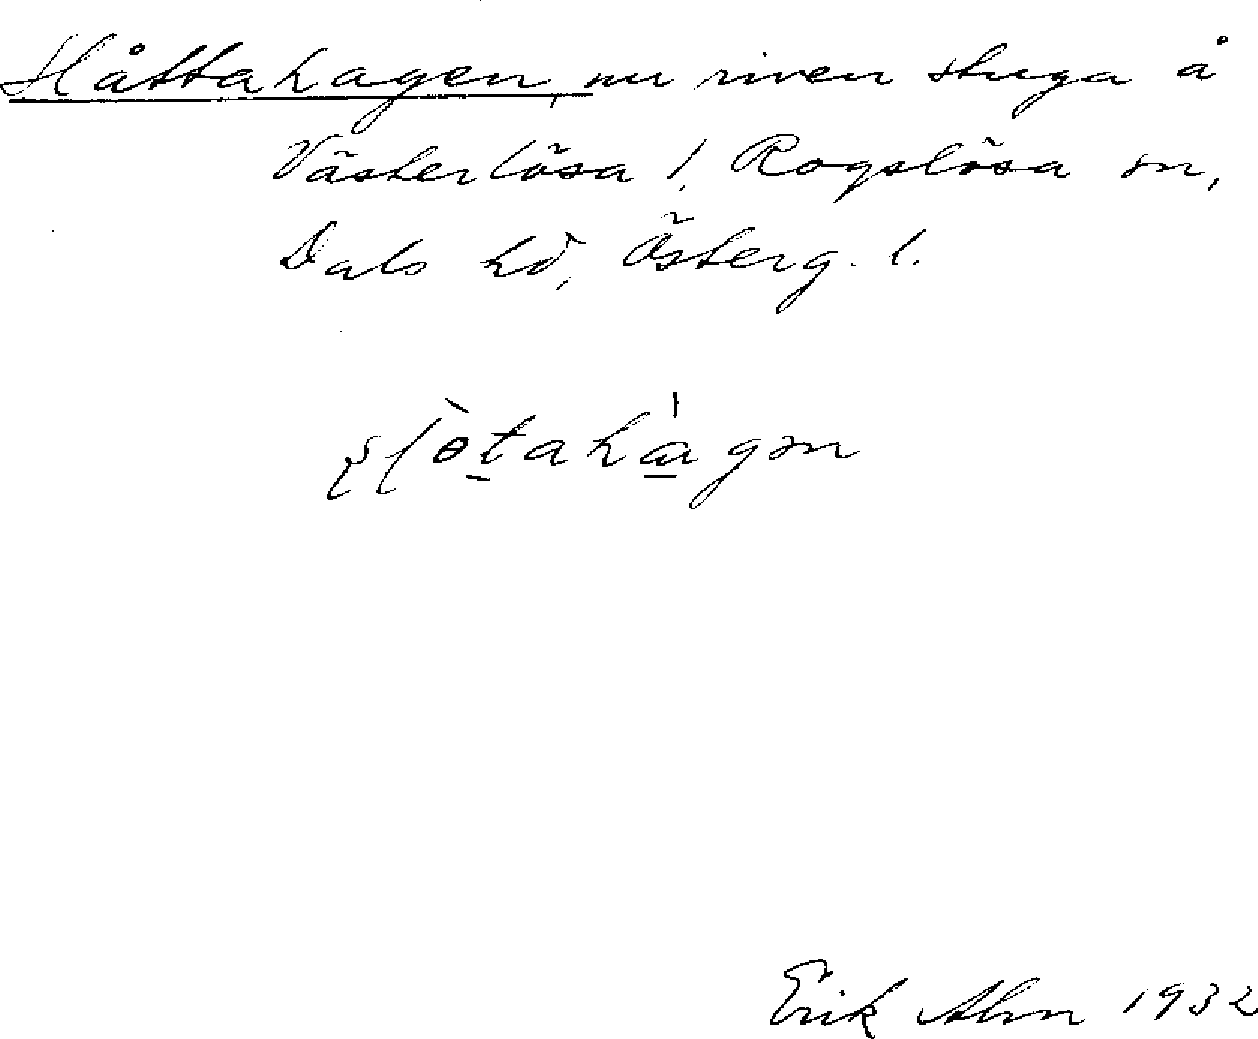 Slåttahagen, nu riven stuga å
Västerlösa l. Rogslösa sn,
Dals hd, Österg. l.
Erik Ahn 1932